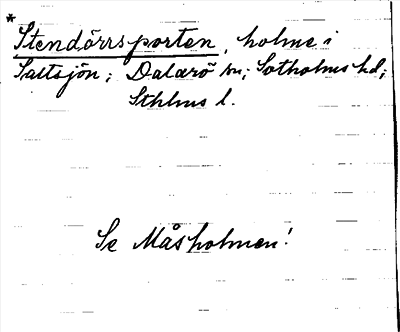 * Stendörrsporten, holme i
Saltsjön; Dalarö sn; Sotholms hd;
Sthlms l.
Se Måsholmen!